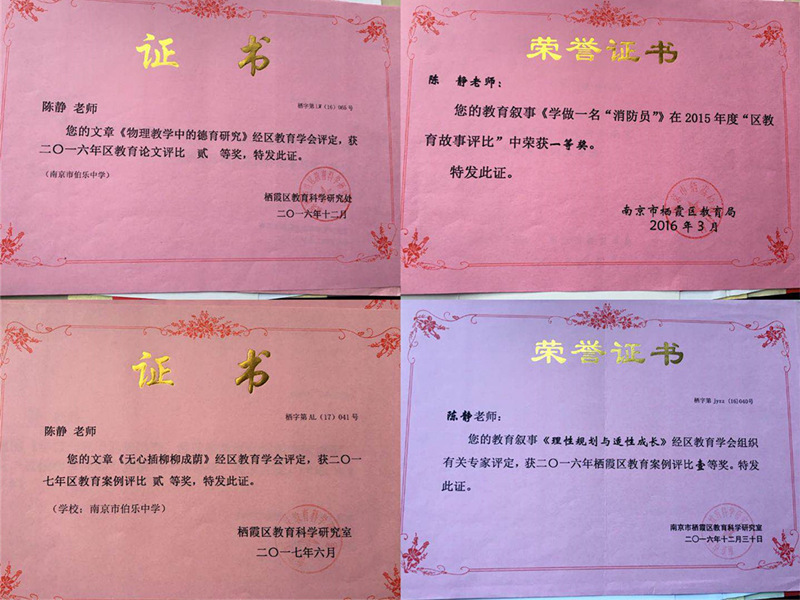 证 书
陈静 老师
栖字第LW（16）065号
您的文章《物理教学中的德育研究》经区教育学会评定，获
二〇一六年区教育论文评比 贰 等奖，特发此证。
（南京市伯乐中学）
栖霞区教育科学研究处
二〇一六年十二月
荣誉证书
陈 静老师：
您的教育叙事《学做一名“消防员”》在2015年度“区教
育故事评比”中荣获一等奖。
特发此证。
南京市栖霞区教育局
2016年3月
证 书
栖字第AL（17）041号
陈静 老师
您的文章《无心插柳柳成荫》经区教育学会评定，获二〇一
七年区教育案例评比 贰 等奖，特发此证。
（学校：南京市伯乐中学）
栖霞区教育科学研究室
二〇一七年六月
荣誉证书
栖字第jyxs（16）040号
陈静老师：
您的教育叙事《理性规划与适性成长》经区教育学会组织
有关专家评定，获二〇一六年栖霞区教育案例评比壹等奖。特发
此证。
南京市栖霞区教育科学研究室
二〇一六年十二月三十日